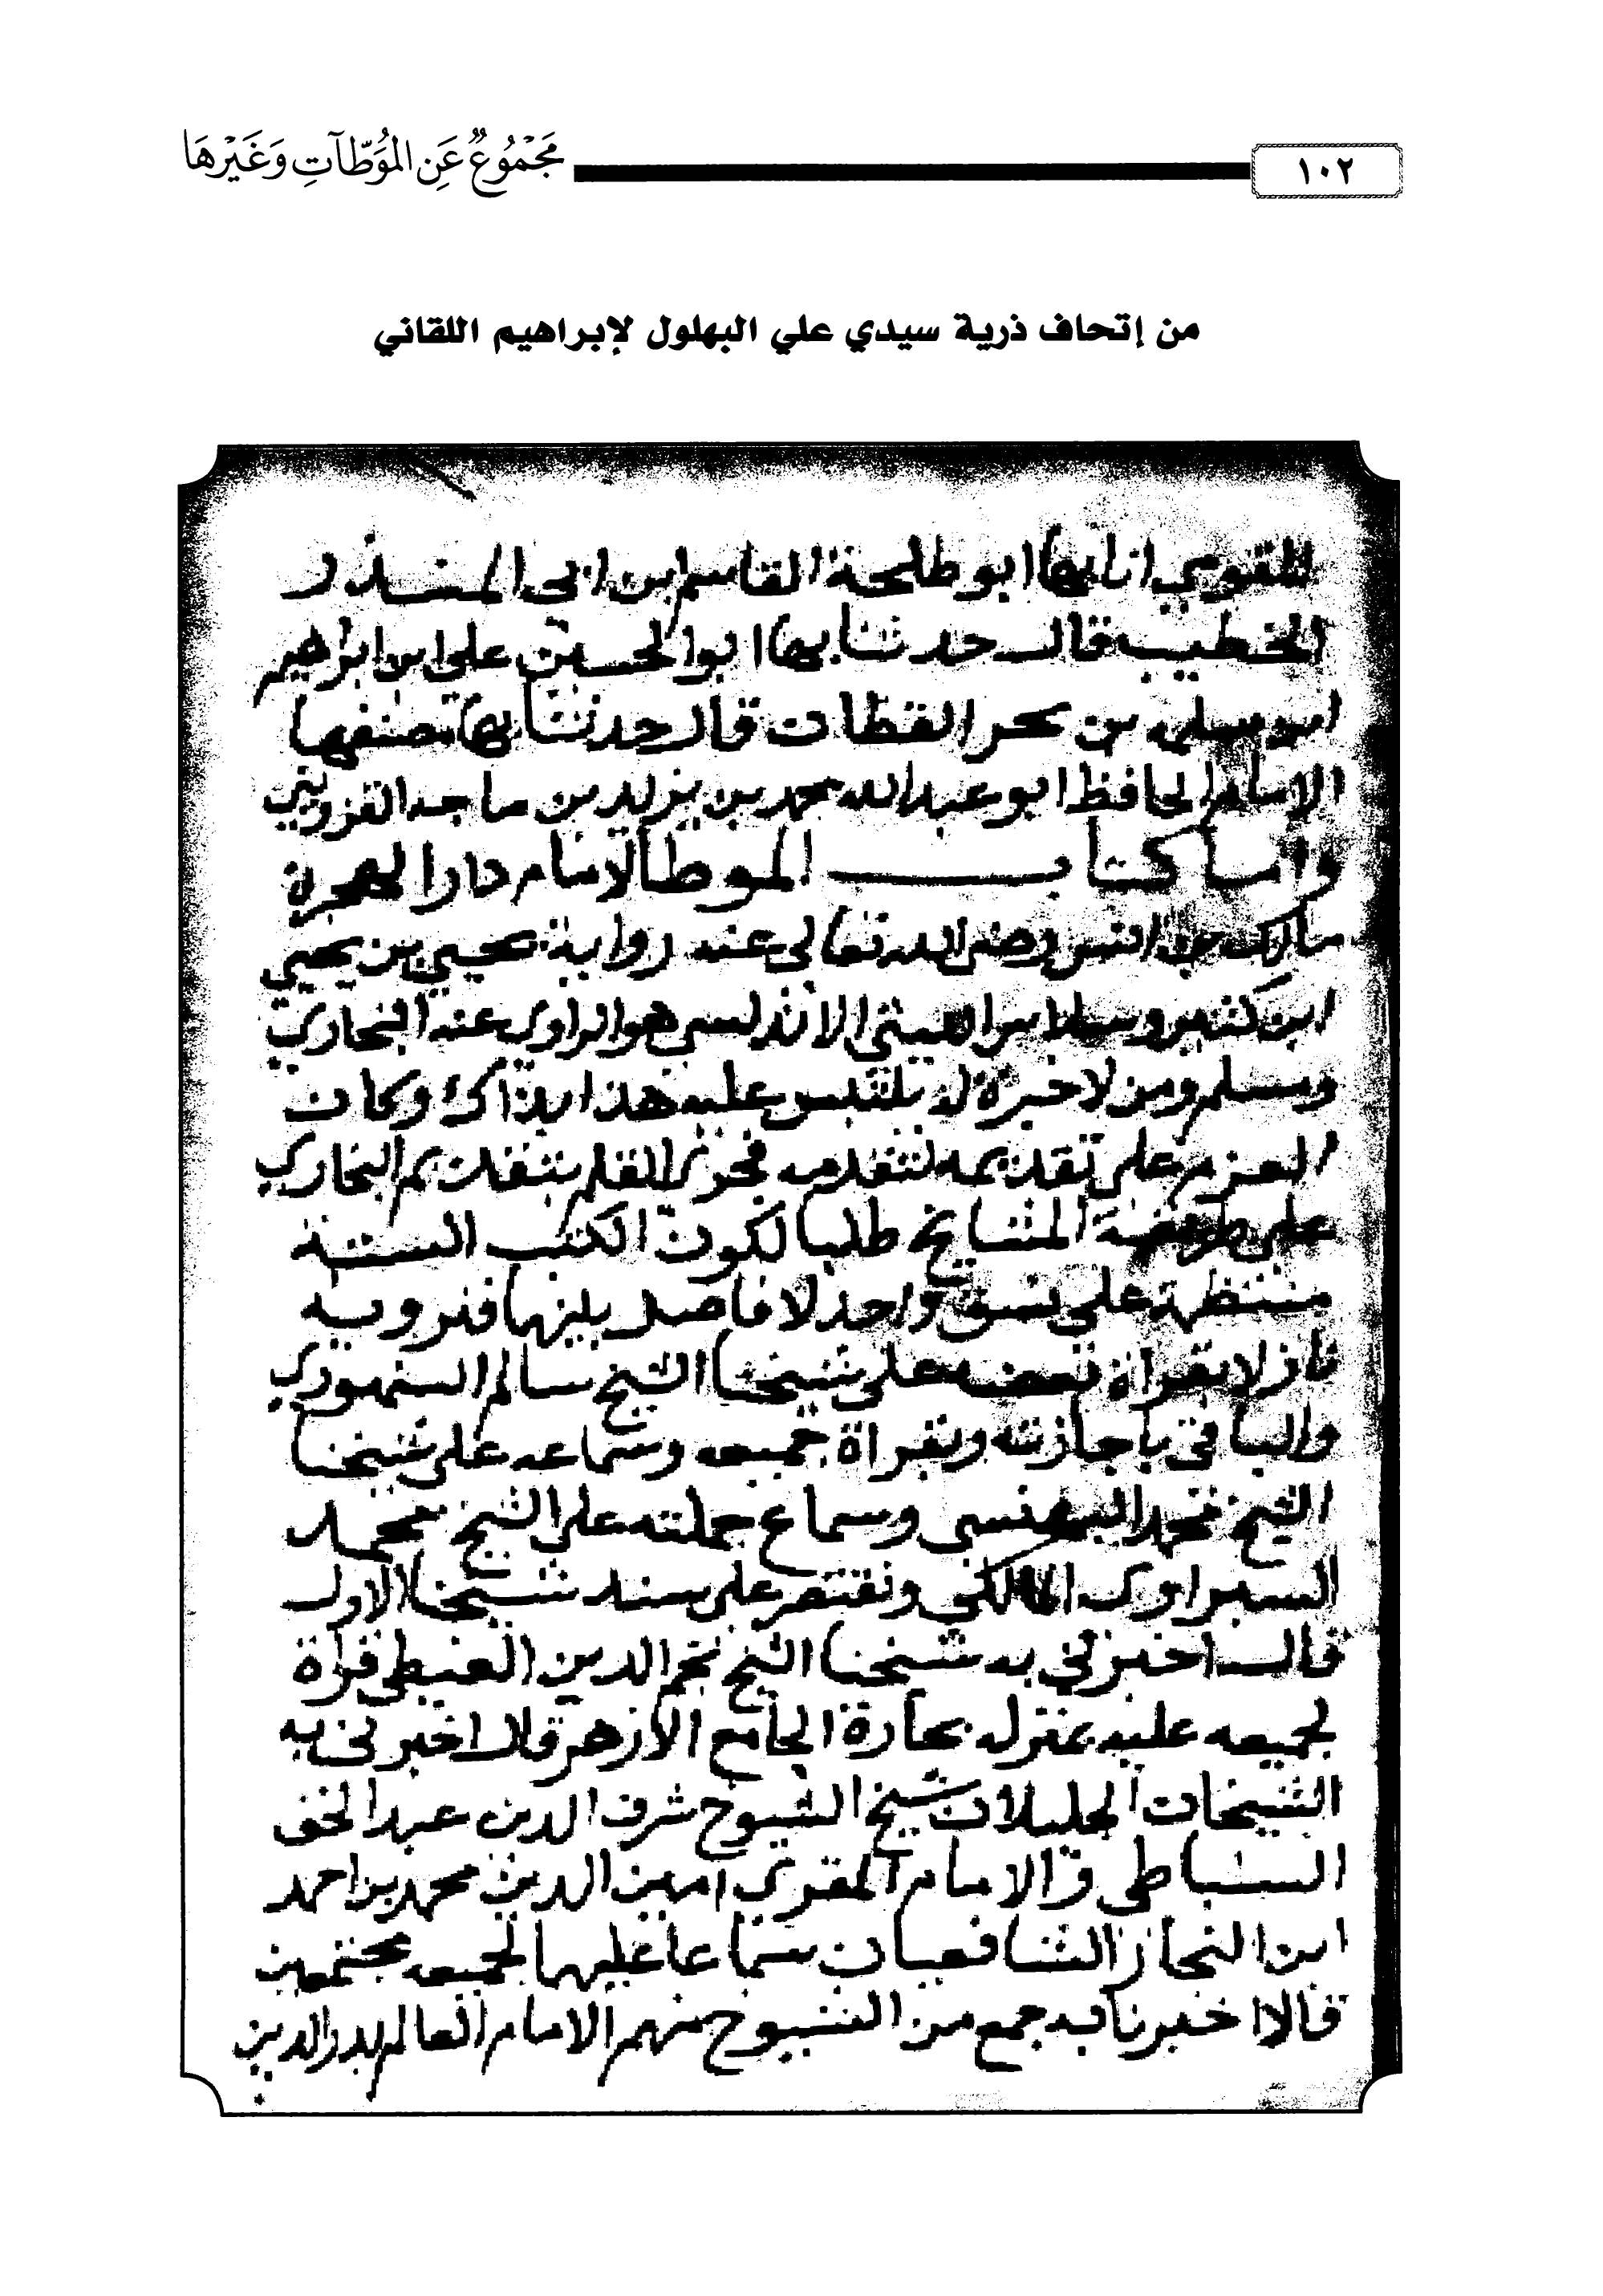 ١٠٢
مَجْمُوعٌ عَنِ المُوَطّآتِ وَغَيْرِهَا
من إتحاف ذرية سيدي علي البهلول لإبراهيم اللقاني
انا بها ابو طلحة القاسم ابن ابي المنذر
الخطيب قال حدثنا بها ابو الحسين علي ابن ابراهيم
ابن سلمه بن بحر القطان قال حدثنا بها مصنفها
الامام الحافظ ابو عبد الله محمد بن يزيد بن ماجه القزويني
واما كتاب الموطا لامام دار الهجرة
مالك بن انس رضي الله تعالى عنه رواية يحيى بن يحيي
ابن كثير الاندلسي هو الراوي عنه البخاري
ومسلم ومن لا خبرة له يلتبس عليه هذا بذاك وكان
العزم على تقديمه لتقدمه فجرى القلم بتقديم البخاري
على طريقة المشايخ طلبا لكون الكتب الستة
منتظمة على نسق واحد لا فاصل بينها فنرويه
نازلا بقراة بعضه على شيخنا الشيخ سالم السنهوري
والباقي باجازته وبقراة جميعه وسماعه على شيخنا
الشيخ محمد البهنسي وسماع جملته على الشيخ محمد
المالكي ونقتصر على سند شيخنا الاول
قال اخبرني به شيخنا الشيخ نجم الدين الغيطي قراة
لجميعه عليه بمنزله بحارة الجامع الازهر قال اخبرني به
الشيخان الجليلان شيخ الشيوخ شرف الدين عبد الحق
السنباطي والامام المقري امين الدين محمد بن احمد
ابن النجار الشافعيان سماعا عليهما لجميعه مجتمعين
قالا اخبرنا به جمع من الشيوخ منهم الامام العالم بدر الدين